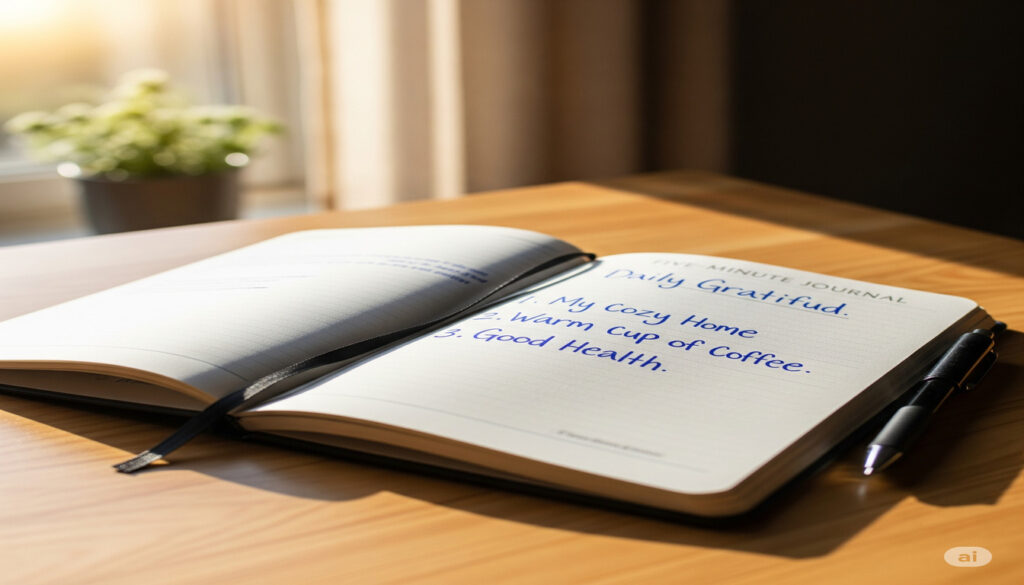 FIVE MINUTE JOURNAL
Daily Gratifud.
1. My Cozy Home
2. Warm Cup of Coffee.
3. Good Health.
ai